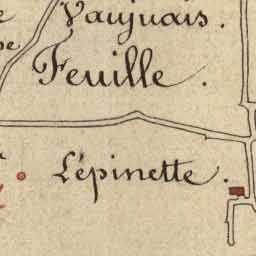 Vaujuais.
Feuille.
L'épinette.